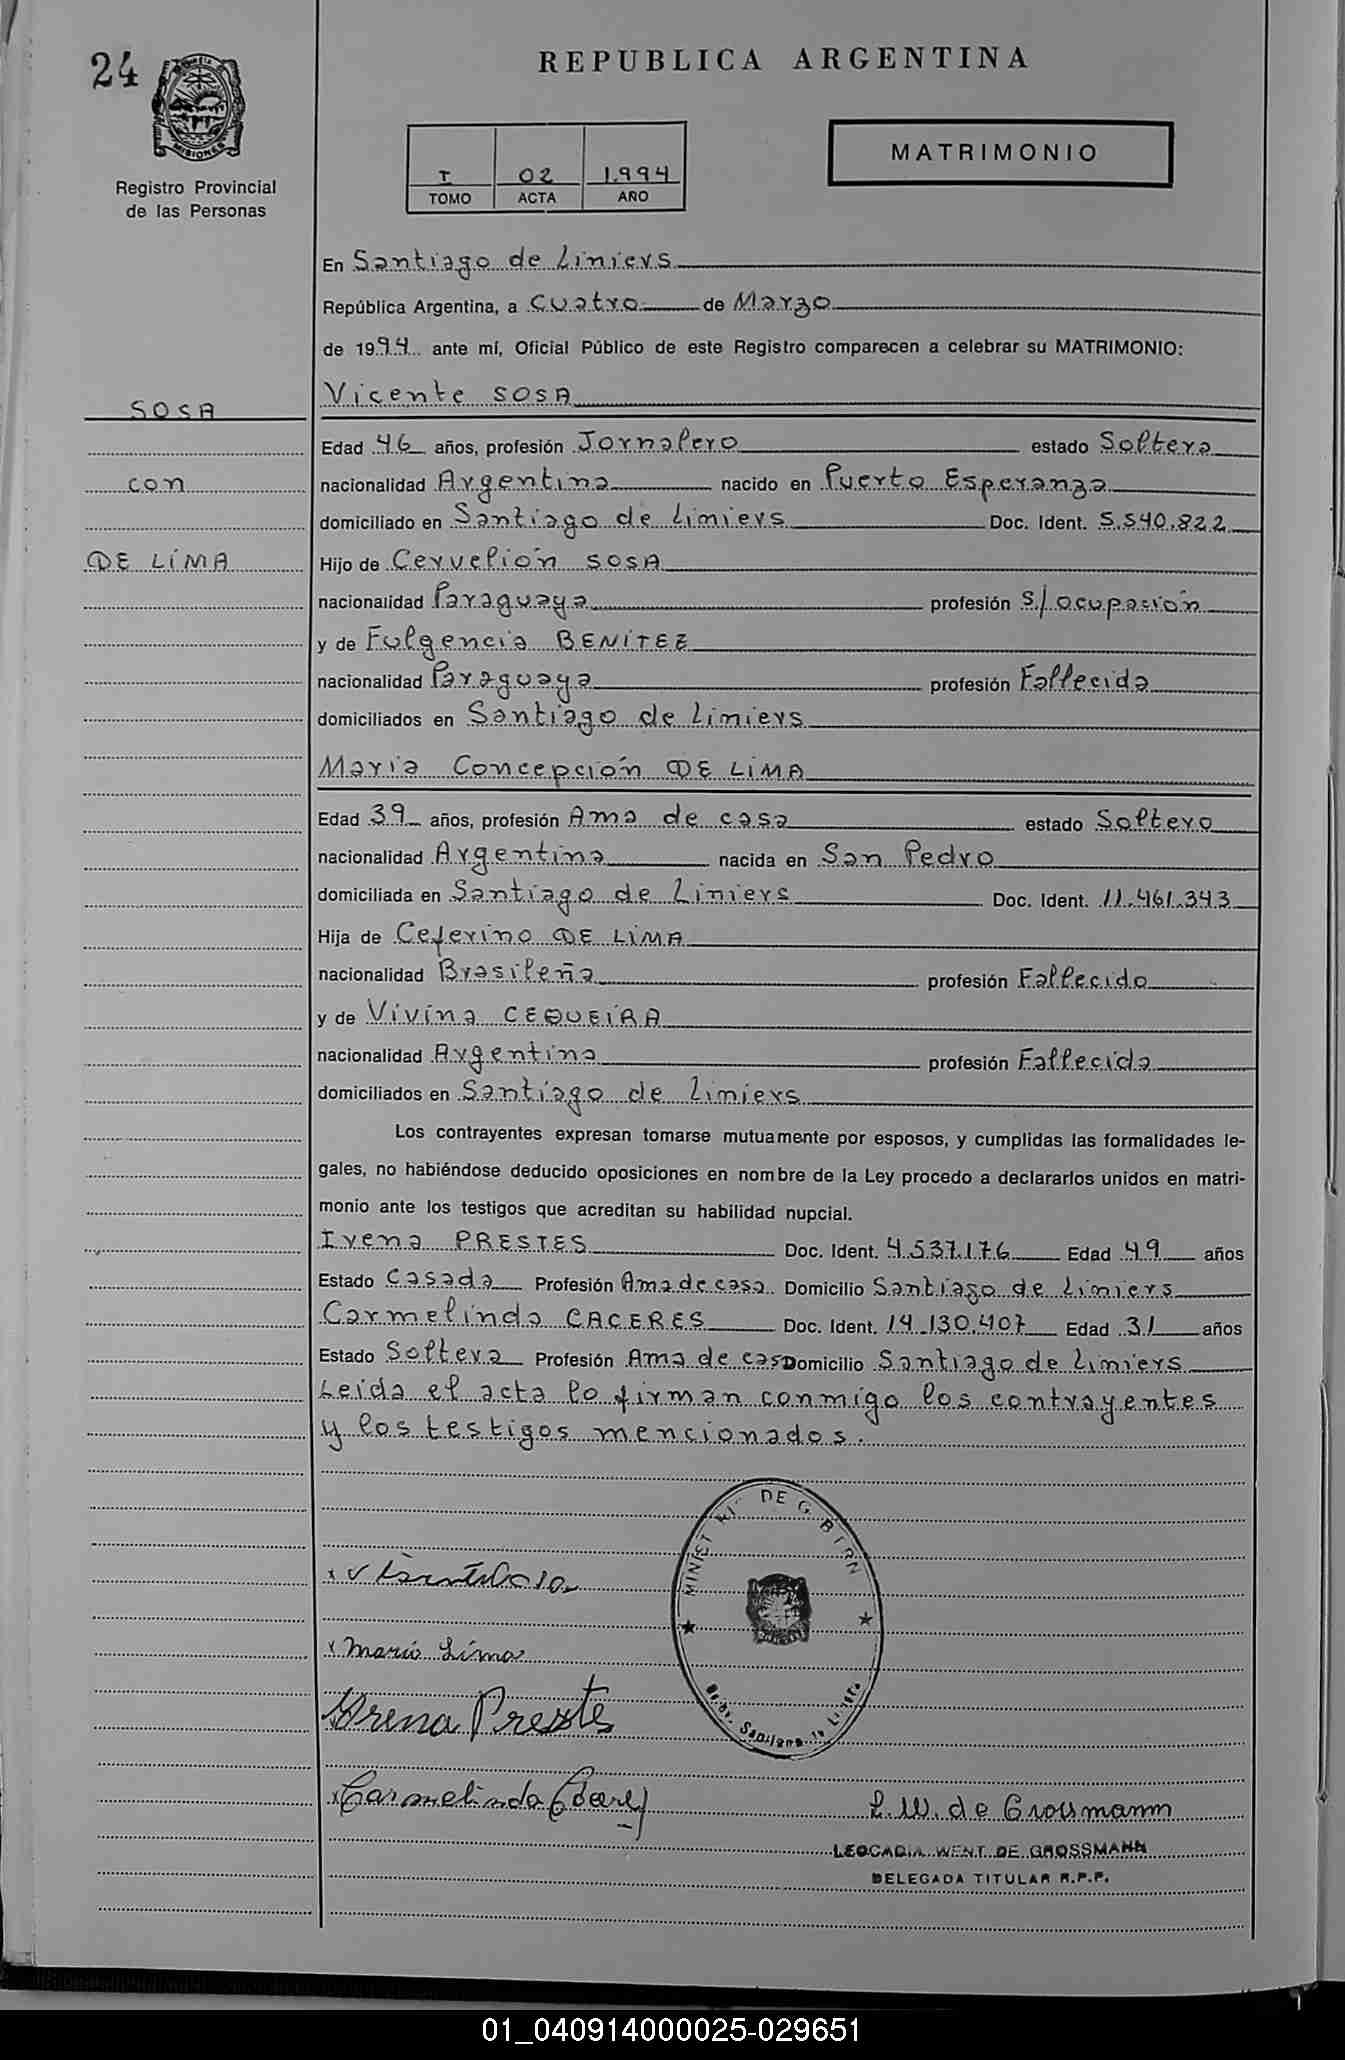 24
REPUBLICA ARGENTINA
MISIONES
Registro Provincial
de las Personas
I 02 1.994
TOMO ACTA AÑO
MATRIMONIO
En Santiago de Liniers
República Argentina, a Cuatro de Marzo
de 1994 ante mí, Oficial Público de este Registro comparecen a celebrar su MATRIMONIO:
SOSA
con
DE LIMA
Vicente SOSA
Edad 46 años, profesión Jornalero estado Soltera
nacionalidad Argentina nacido en Puerto Esperanza
domiciliado en Santiago de Liniers Doc. Ident. 5.540.822
Hijo de Cervelión SOSA
nacionalidad Paraguaya profesión s/ocupación
y de Fulgencia BENITEZ
nacionalidad Paraguaya profesión Fallecida
domiciliados en Santiago de Liniers
Maria Concepción DE LIMA
Edad 39 años, profesión Ama de casa estado Soltero
nacionalidad Argentina nacida en San Pedro
domiciliada en Santiago de Liniers Doc. Ident. 11.461.343
Hija de Ceferino DE LIMA
nacionalidad Brasileña profesión Fallecido
y de Vivina CEQUEIRA
nacionalidad Argentina profesión Fallecida
domiciliados en Santiago de Liniers
Los contrayentes expresan tomarse mutuamente por esposos, y cumplidas las formalidades le-
gales, no habiéndose deducido oposiciones en nombre de la Ley procedo a declararlos unidos en matri-
monio ante los testigos que acreditan su habilidad nupcial.
Irena PRESTES Doc. Ident. 4.537.176 Edad 49 años
Estado Casada Profesión Ama de casa Domicilio Santiago de Liniers
Carmelinda CACERES Doc. Ident. 14.130.407 Edad 31 años
Estado Soltera Profesión Ama de casa Domicilio Santiago de Liniers
Leida el acta lo firman conmigo los contrayentes
y los testigos mencionados.
Maria Lima
Irena Prestes
Carmelinda
L. W. de Grossmann
LEOCADIA WENT DE GROSSMANN
DELEGADA TITULAR R.P.P.
01_040914000025-029651